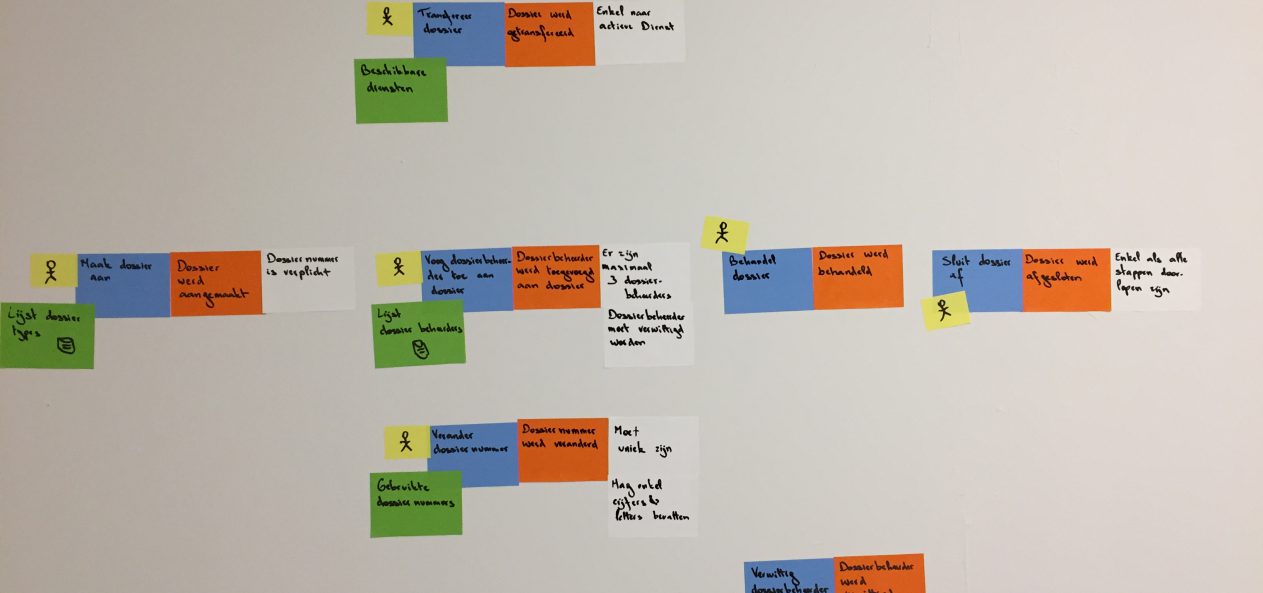 Transfereer
dossier
Dossier werd
getransfereerd
Enkel naar
actieve Dienst
Beschikbare
diensten
Maak dossier
aan
Dossier
werd
aangemaakt
Dossiernummer
is verplicht
Lijst dossier
types
Voeg dossierbeheer-
der toe aan
dossier
Dossierbeheerder
werd toegevoegd
aan dossier
Er zijn
maximaal
3 dossier-
beheerders
Dossierbeheerder
moet verwittigd
worden
Lijst
dossier beheerders
Behandel
dossier
Dossier werd
behandeld
Sluit dossier
af
Dossier werd
afgesloten
Enkel als alle
stappen door-
lopen zijn
Verander
dossiernummer
Dossiernummer
werd veranderd
Moet
uniek zijn
Mag enkel
cijfers &
letters bevatten
Gebruikte
dossiernummers
Verwittig
dossierbeheerder
Dossierbeheerder
werd